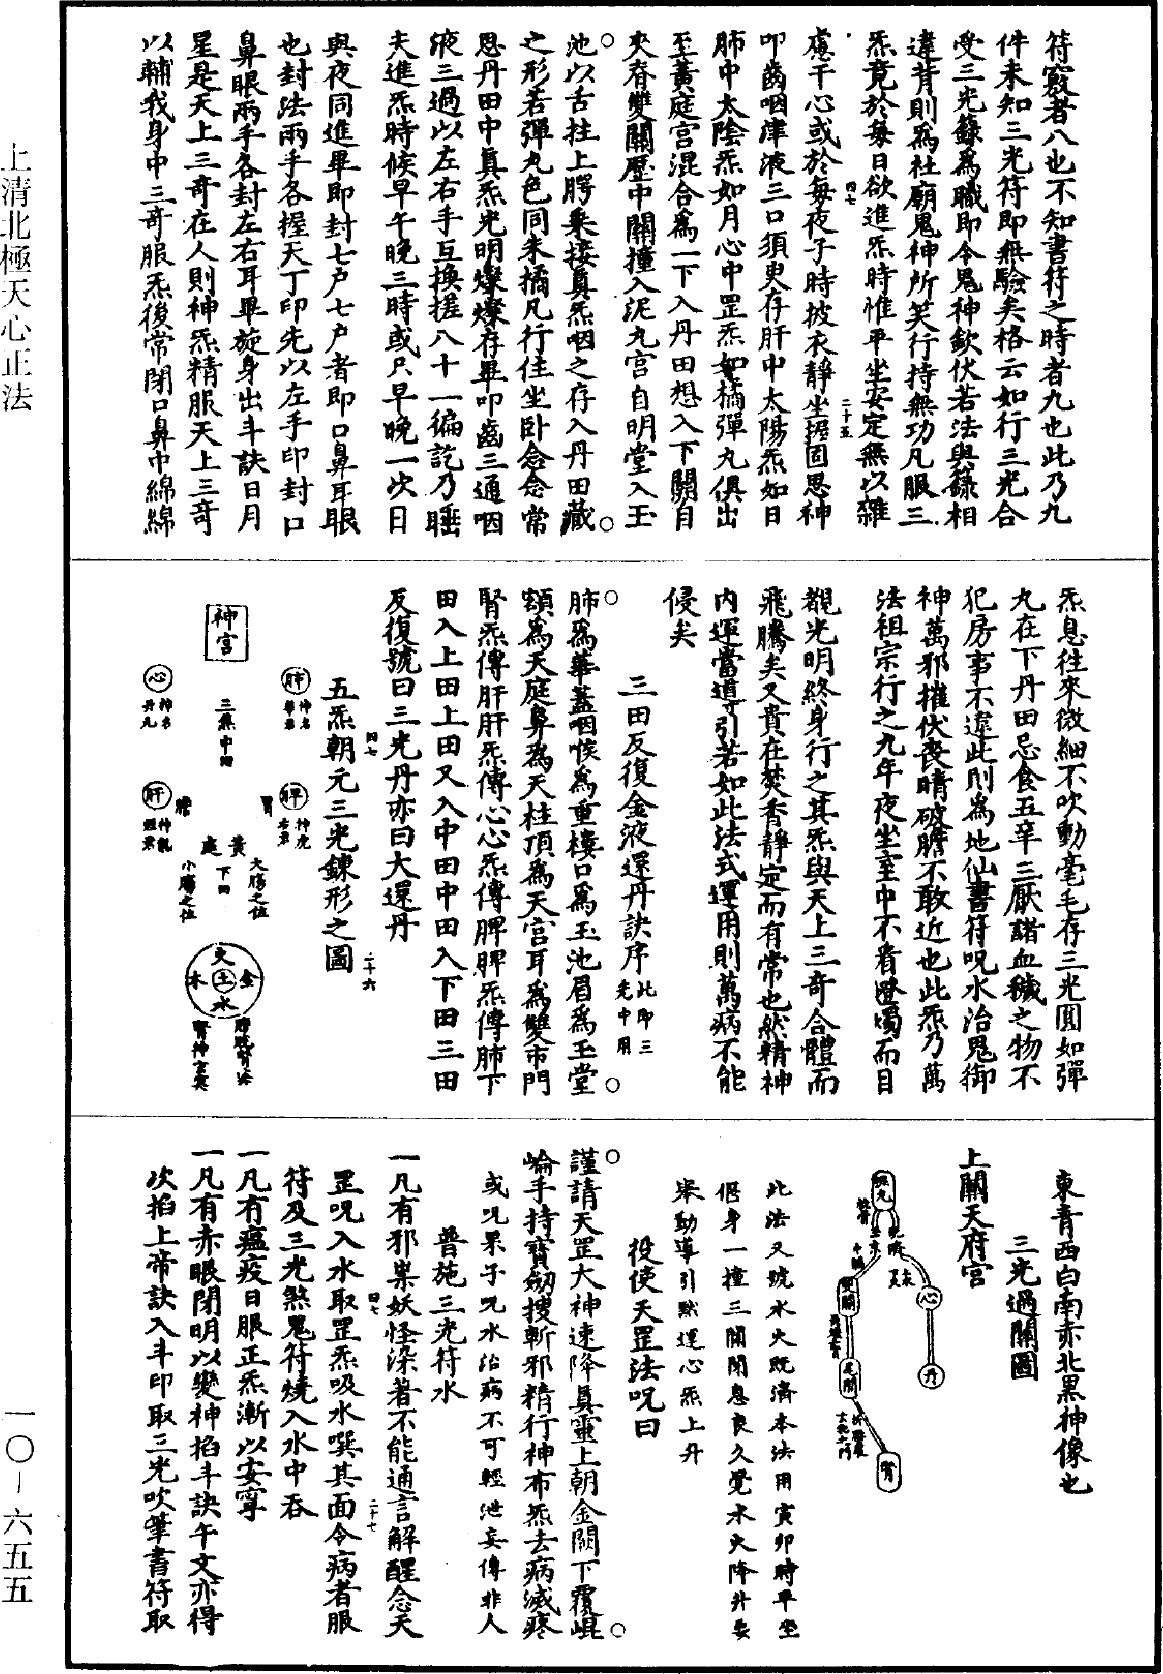 符竅者八也不知書符之時者九也此乃九
件未知三光符即無驗矣格云如行三光合
受三光籙為職即令鬼神欽伏若法與籙相
違背則為社廟鬼神所笑行持無功凡服三
炁竟於每日欲進炁時惟平坐安定無以雜
慮干心或於每夜子時披衣靜坐握固思神
叩齒咽津液三口須臾存肝中太陽炁如日
肺中太陰炁如月心中罡炁如橘彈丸俱出
至黃庭宮混合為一下入丹田想入下關自
夾脊雙關歷中關撞入泥丸宮自明堂入玉
池以舌拄上腭乘接真炁咽之存入丹田藏
之形若彈丸色同朱橘凡行住坐臥念念常
思丹田中真炁光明燦燦存畢叩齒三通咽
液三過以左右手互換搓八十一徧訖乃睡
夫進炁時候早午晚三時或只早晚一次日
與夜同進畢即封七户七户者即口鼻耳眼
也封法兩手各握天丁印先以左手印封口
鼻眼兩手各封左右耳畢旋身出斗訣日月
星是天上三奇在人則神炁精服天上三奇
以輔我身中三奇服炁後常閉口鼻中綿綿
炁息往來微細不吹動毫毛存三光圓如彈
丸在下丹田忌食五辛三厭諸血穢之物不
犯房事不違此則為地仙書符呪水治鬼御
神萬邪摧伏喪睛破膽不敢近也此炁乃萬
法祖宗行之九年夜坐室中不看燈燭而目
覩光明終身行之其炁與天上三奇合體而
飛騰矣又貴在焚香靜定而有常也然精神
內運當導引若如此法式運用則萬病不能
侵矣
三田反復金液還丹訣序此即三
光中用
肺為華蓋咽喉為重樓口為玉池眉為玉堂
額為天庭鼻為天柱頂為天宮耳為雙市門
腎炁傳肝肝炁傳心心炁傳脾脾炁傳肺下
田入上田上田又入中田中田入下田三田
反復號曰三光丹亦曰大還丹
五炁朝元三光鍊形之圖
神宮
肺
神名
華蓋
心
神名
丹元
三焦中田
脾
神虎
肝
神龍
膽
胃
黃庭
下田
大腸之位
小腸之位
火
金
土
木
水
腎神玄冥
東青西白南赤北黑神像也
三光過關圖
上關天府宮
心
丹
雙關
尾閭
腎
此法又號水火既濟本法用寅卯時平坐
偃身一撞三關閉息良久覺水火降升要
舉動導引默運心炁上升
役使天罡法呪曰
謹請天罡大神速降真靈上朝金闕下覆崐
崘手持寶劒搜斬邪精行神布炁去病滅疼
或呪果子呪水治病不可輕泄妄傳非人
普施三光符水
一凡有邪祟妖怪染著不能通言解醒念天
罡呪入水取罡炁吸水噀其面令病者服
符及三光煞鬼符燒入水中吞
一凡有瘟疫日服正炁漸以安寧
一凡有赤眼閉明以變神掐斗訣午文亦得
次掐上帝訣入斗印取三光吹筆書符取
四七
二十五
四七
二十六
四七
二十七
上清北極天心正法
一〇－六五五